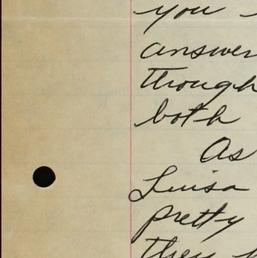 you -
answer
though
both
As
Luisa
pretty
they